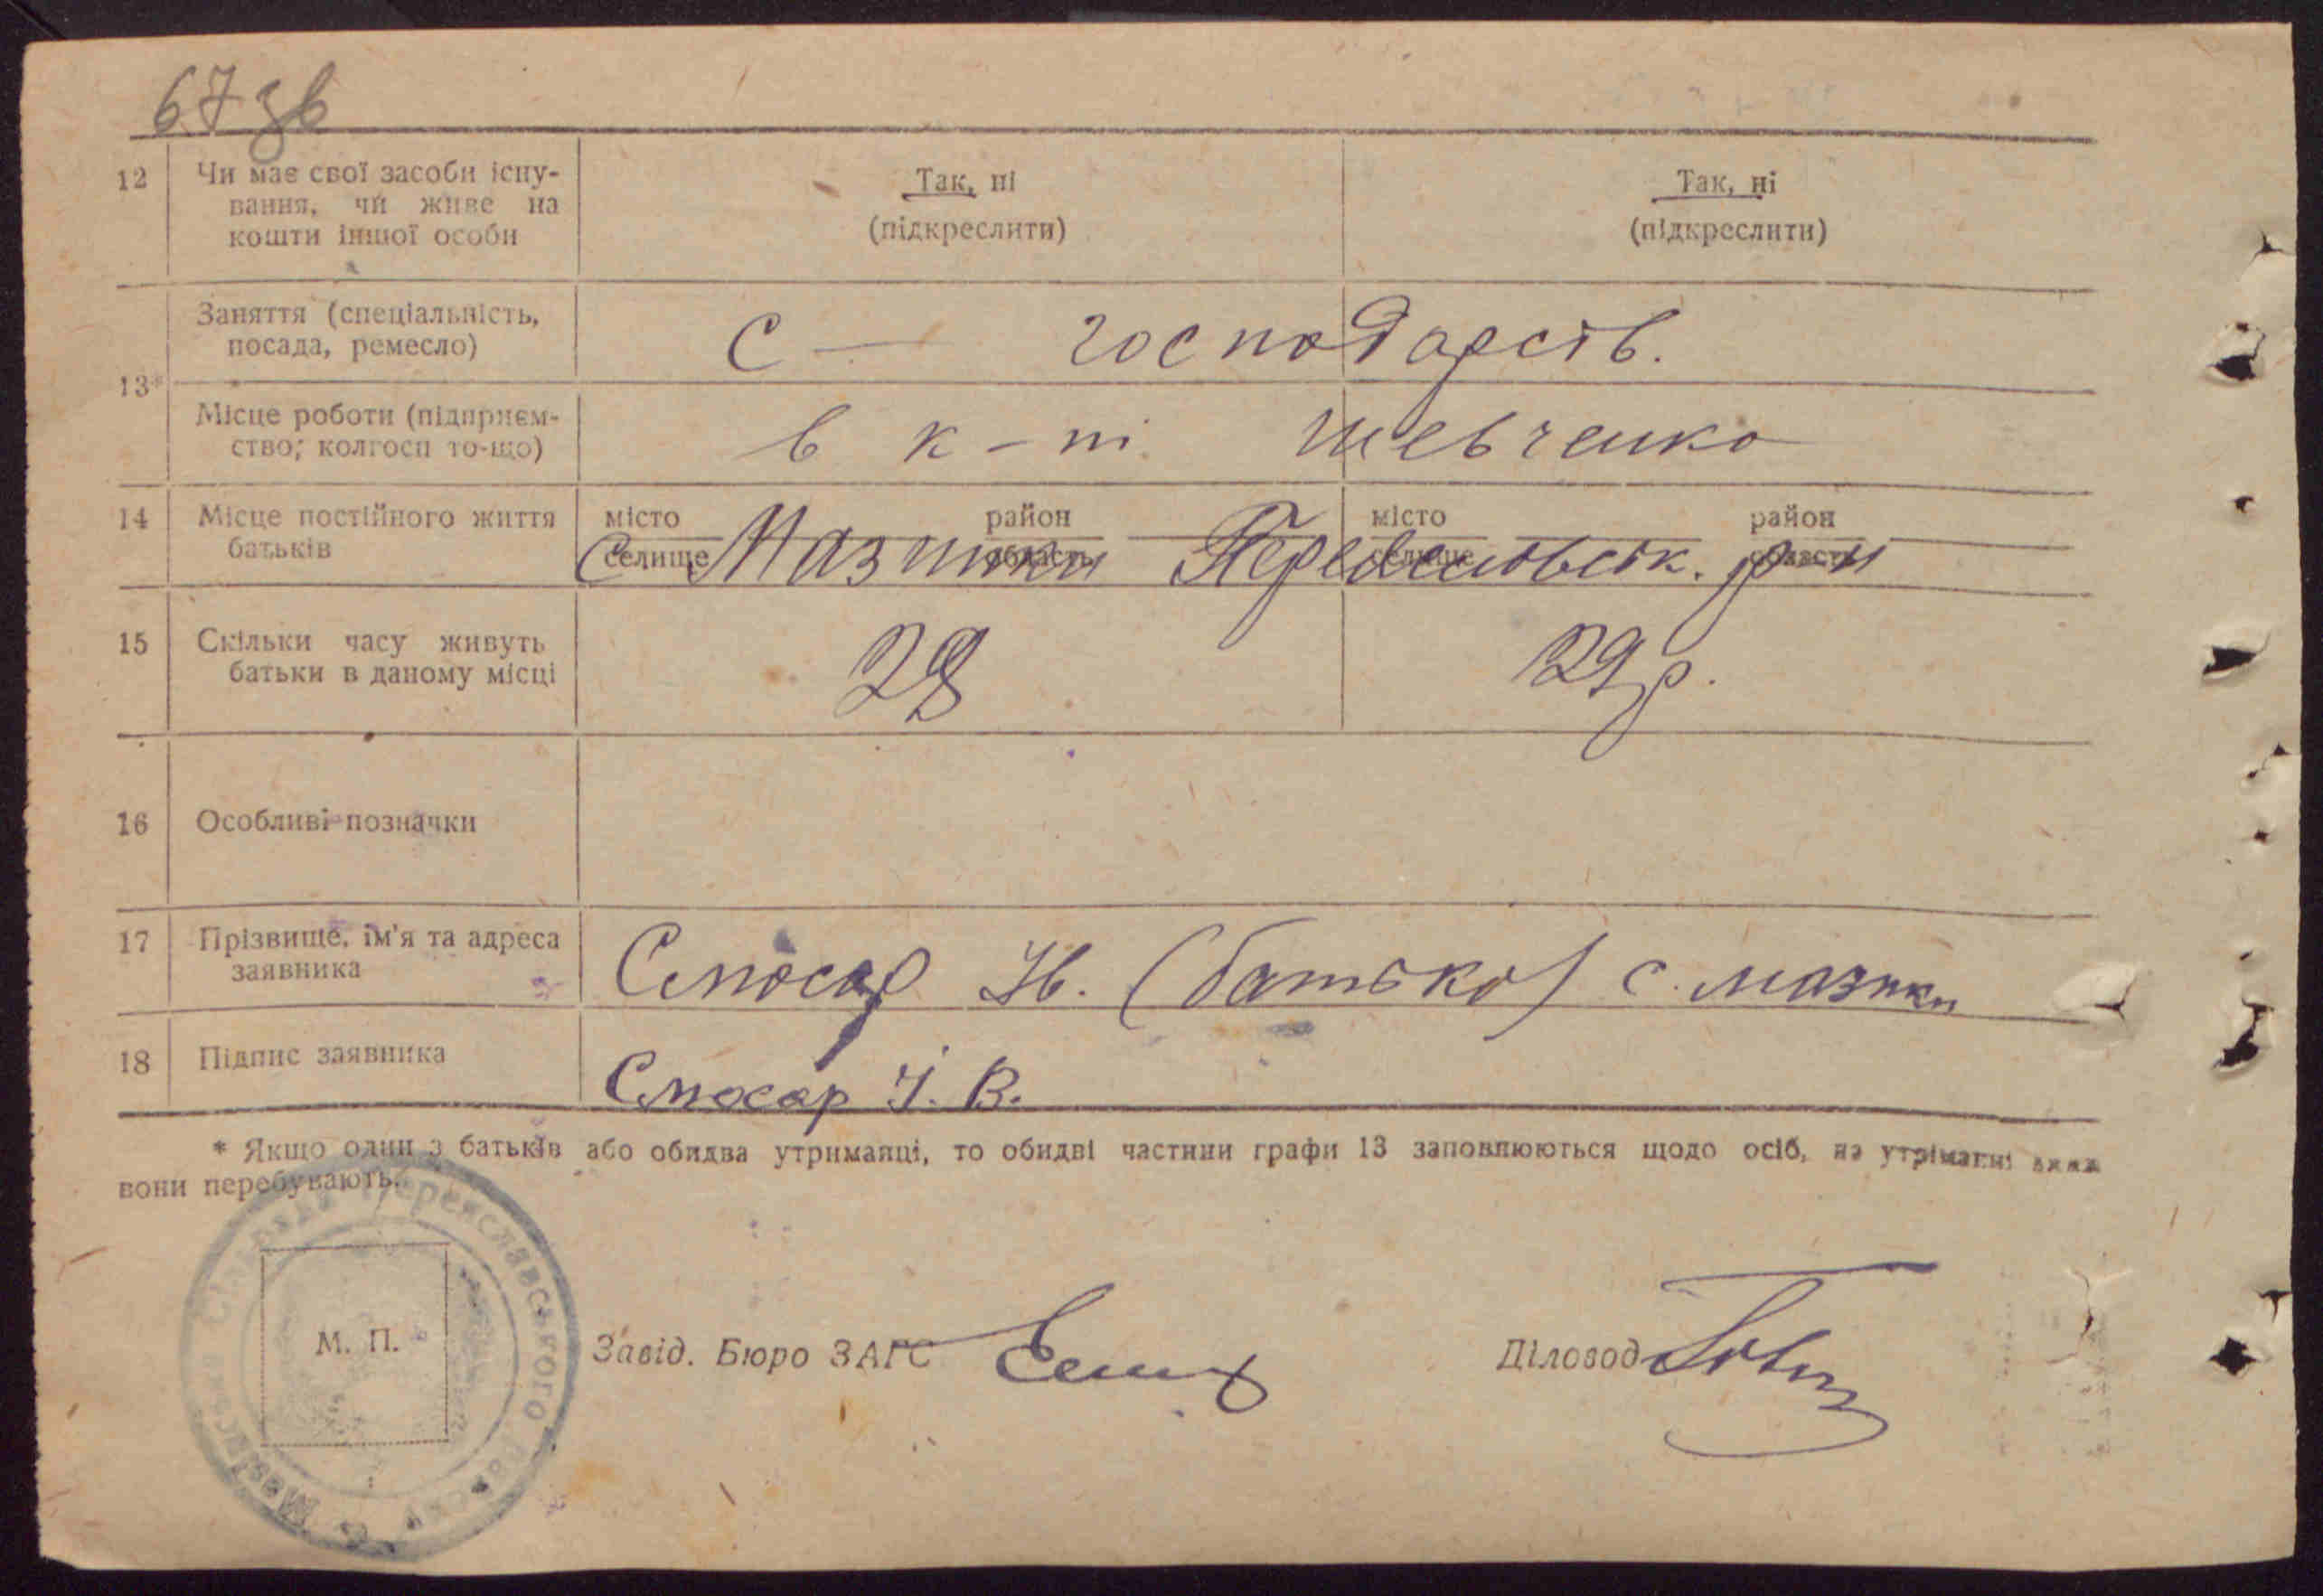 67 зв
12 Чи має свої засоби існу-
вання, чи живе на
кошти іншої особи
Так, ні
(підкреслити)
Так, ні
(підкреслити)
13*
Заняття (спеціальність,
посада, ремесло)
С — господарств.
Місце роботи (підприєм-
ство; колгосп то-що)
в к-пі Шевченко
14 Місце постійного життя
батьків
місто район місто район
селище область селище область
С. Мазінки р-н
15 Скільки часу живуть
батьки в даному місці
28 29 р.
16 Особливі позначки
17 Прізвище, ім'я та адреса
заявника
Слюсар Ів. (батько) с. Мазінки
18 Підпис заявника
Слюсар І. В.
* Якщо один з батьків або обидва утриманці, то обидві частини графи 13 заповнюються щодо осіб, на утріманні яких
вони перебувають.
Переяславського
М. П.
Завід. Бюро ЗАГС
Діловод